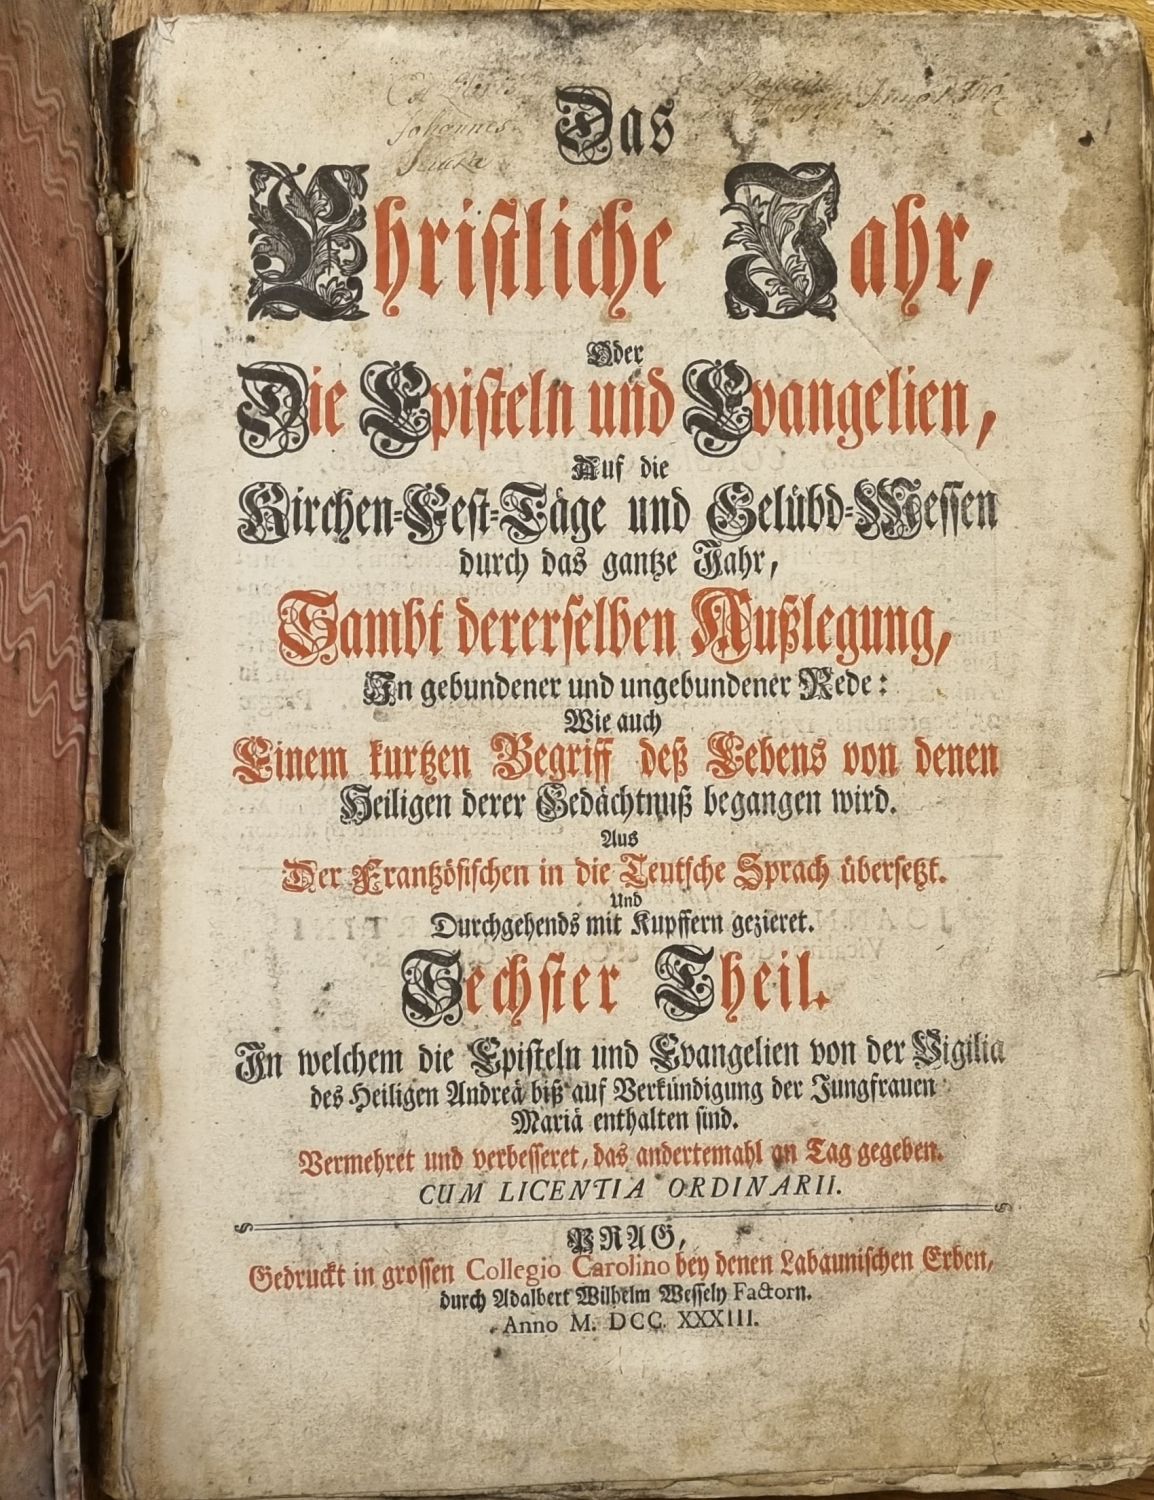 Ex Libris
Johannes
Anno
Das
Christliche Jahr,
Oder
Die Episteln und Evangelien,
Auf die
Kirchen-Fest-Täge und Gelübd-Messen
durch das gantze Jahr,
Sambt dererselben Außlegung,
In gebundener und ungebundener Rede:
Wie auch
Einem kurtzen Begriff deß Lebens von denen
Heiligen derer Gedächtnuß begangen wird.
Aus
Der Frantzösischen in die Teutsche Sprach übersetzt.
Und
Durchgehends mit Kupffern gezieret.
Sechster Theil.
In welchem die Episteln und Evangelien von der Vigilia
des Heiligen Andreä biß auf Verkündigung der Jungfrauen
Mariä enthalten sind.
Vermehret und verbesseret, das andertemahl an Tag gegeben.
CUM LICENTIA ORDINARII.
PRAG,
Gedruckt in grossen Collegio Carolino bey denen Labaunischen Erben,
durch Adalbert Wilhelm Wessely Factorn.
Anno M. DCC. XXXIII.